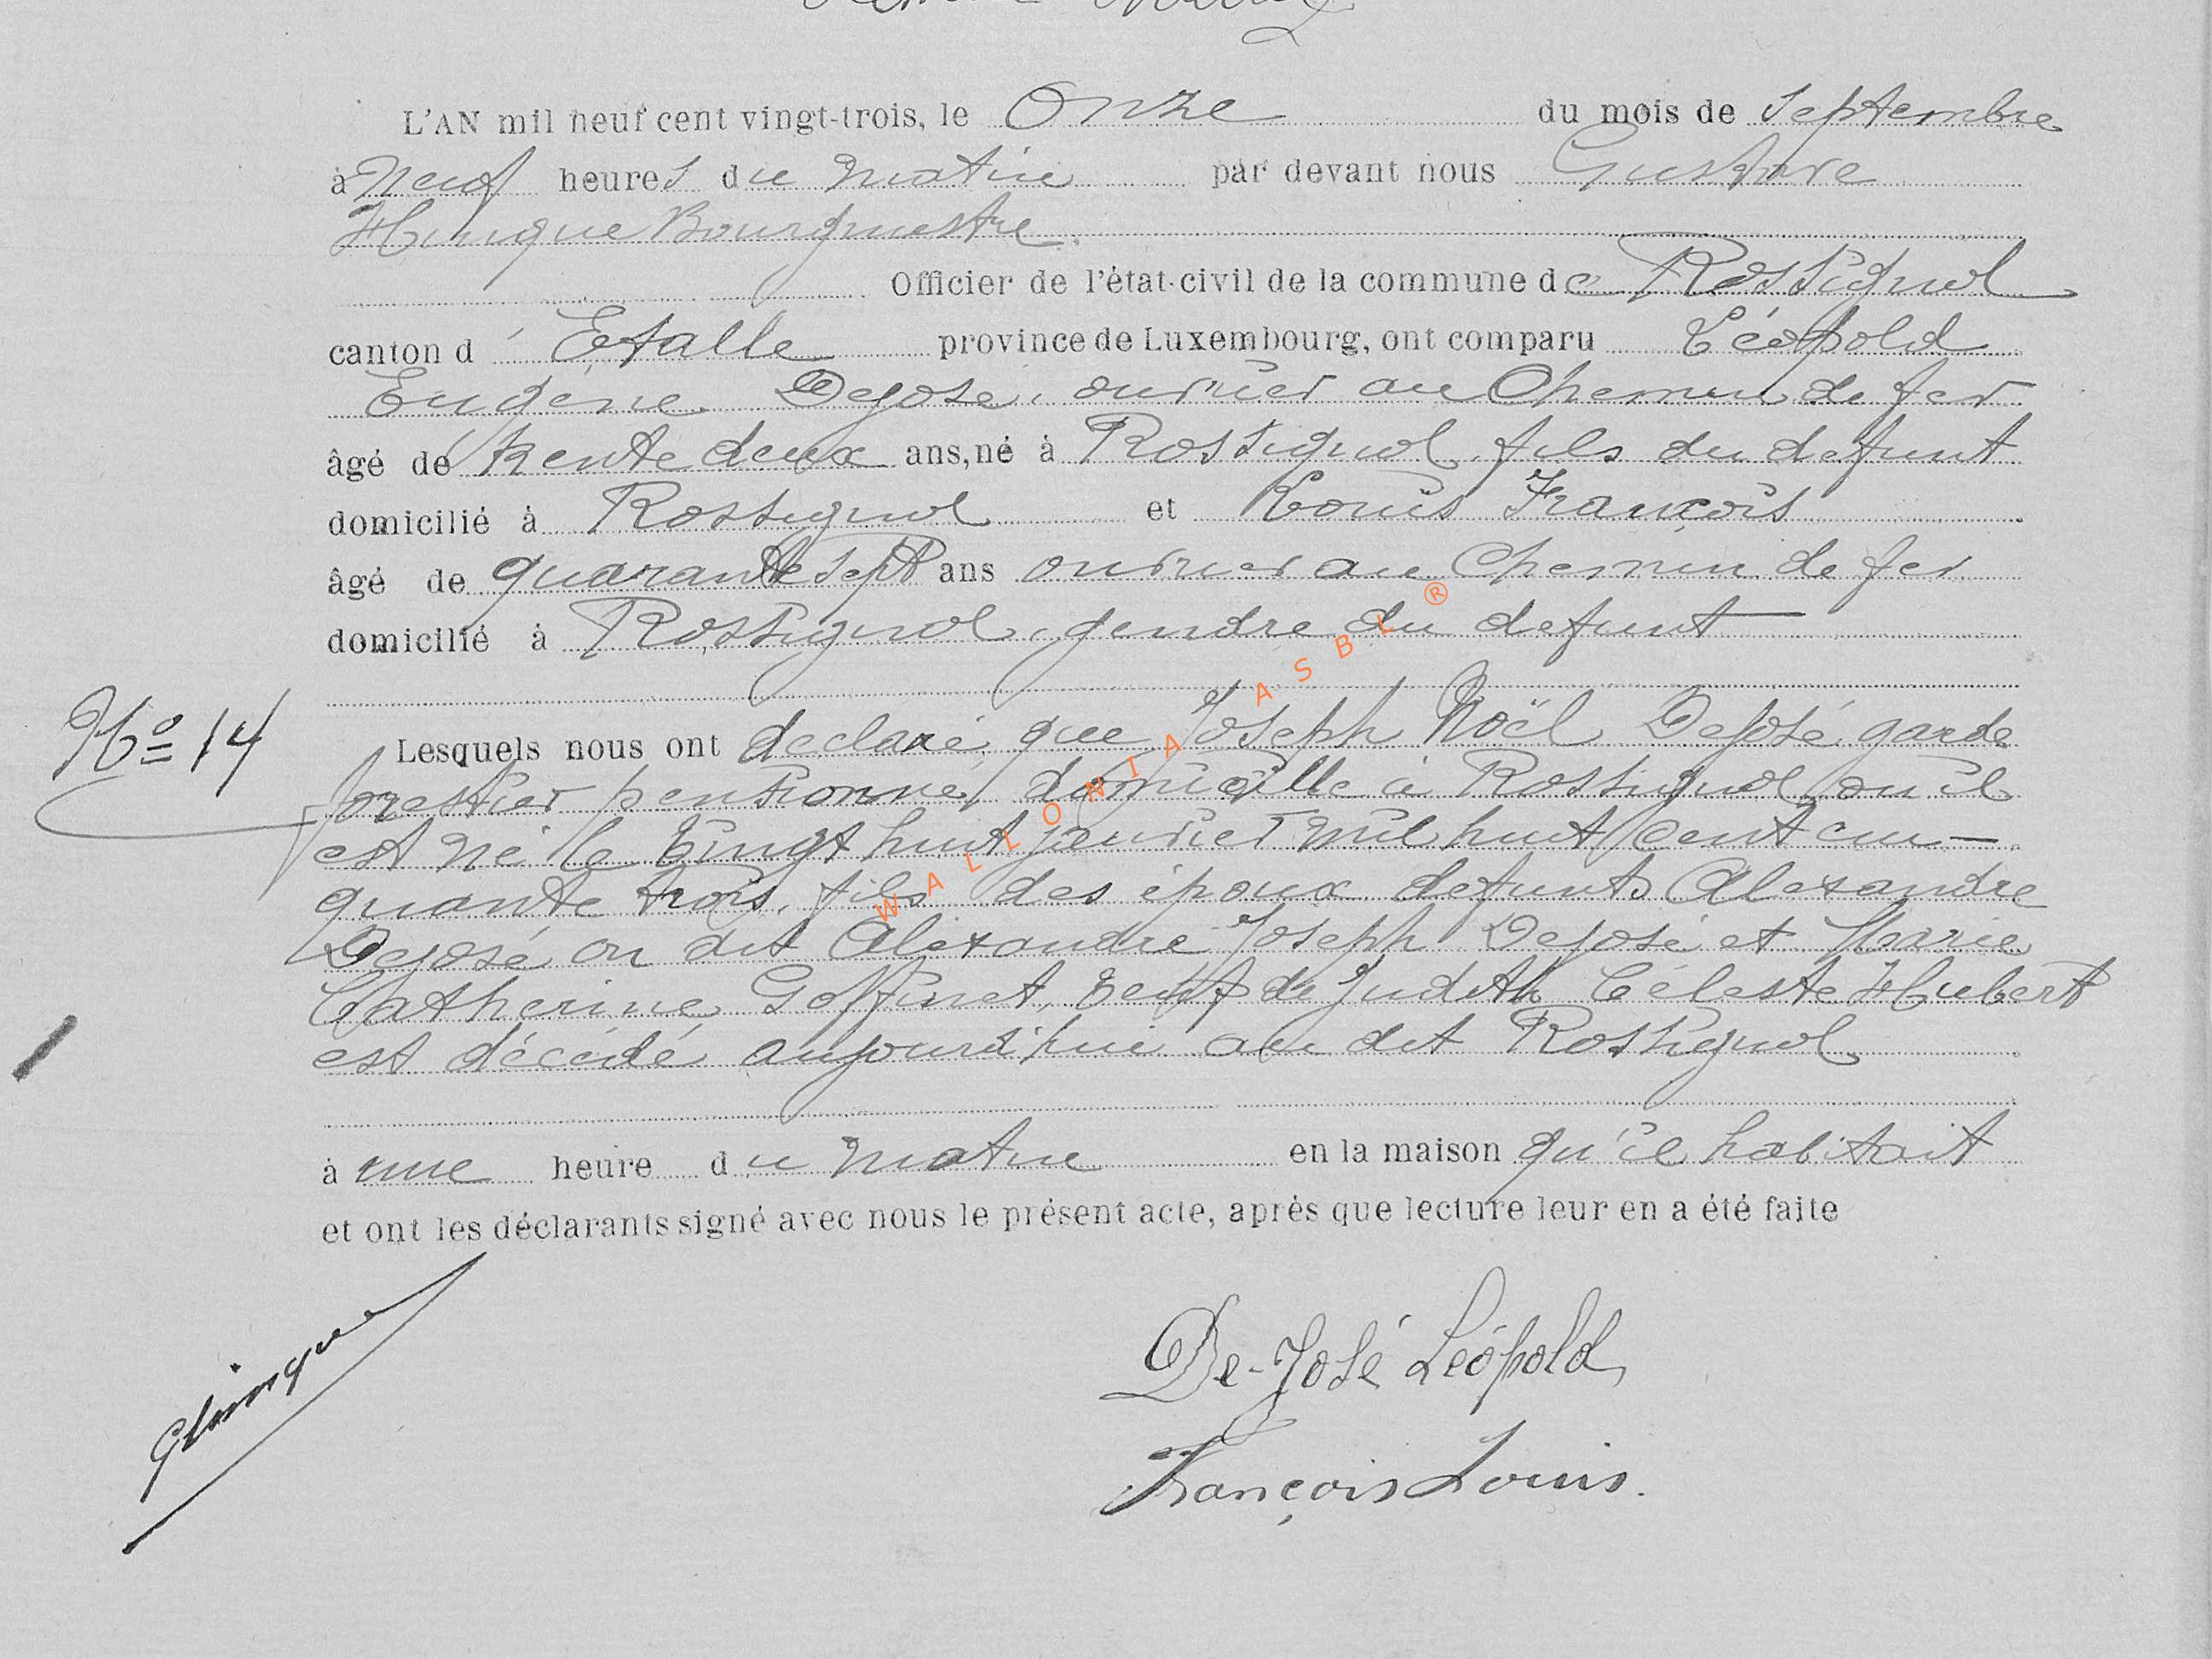 L'AN mil neuf cent vingt-trois, le Onze du mois de Septembre
à Neuf heures du matin par devant nous Gustave
Hinque Bourgmestre
Officier de l'état-civil de la commune de Rossignol
canton d'Etalle province de Luxembourg, ont comparu Léopold
Eugène Dejosé, ouvrier au Chemin de fer
âgé de trente deux ans, né à Rossignol, fils du defunt
domicilié à Rossignol et Louis François
âgé de quarante sept ans ouvrier au Chemin de fer
domicilié à Rossignol, gendre du defunt
Nº 14 Lesquels nous ont declaré que Joseph Noël Dejosé garde
forestier pensionné, domicille à Rossignol ou il
est né le vingt huit janvier mil huit cent cin-
quante trois, fils des époux defunts Alexandre
Dejosé on dit Alexandre Joseph Dejosé et Marie
Catherine Goffinet, veuf de Judith Céleste Hubert
est décédé aujourd'hui au dit Rossignol
à une heure du matin en la maison qu'il habitait
et ont les déclarants signé avec nous le présent acte, après que lecture leur en a été faite
De-José Léopold
GHinque
François Louis.
WALLONIA ASBL ®